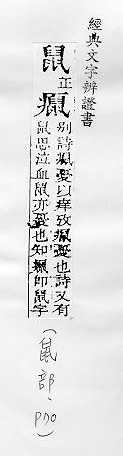 經典文字辨證書
鼠正
癙別詩癙憂以痒攷癙憂也詩又有
鼠思泣血鼠亦憂也知癙即鼠字
(鼠部、